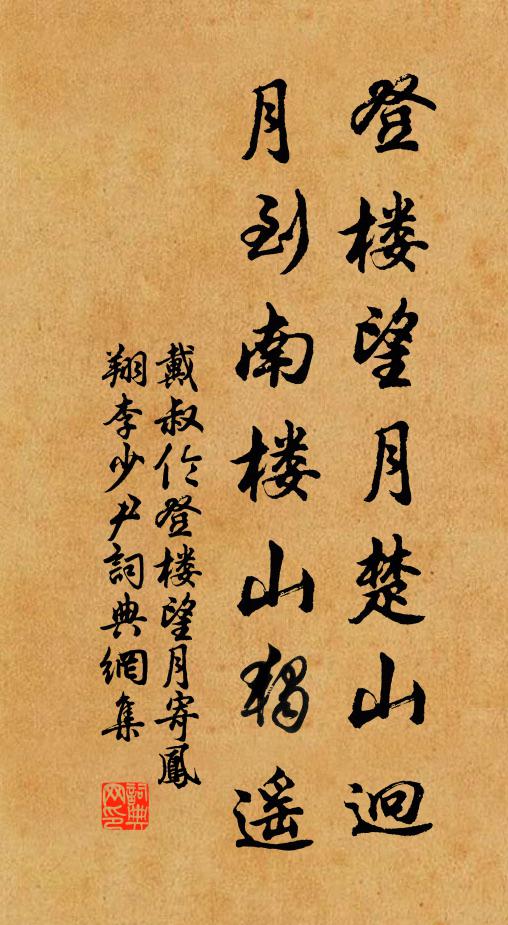 登楼望月楚山迥
月到南楼山獨遥
戴叔伦登楼望月寄鳳
翔李少尹詞典網集
詞典
网印